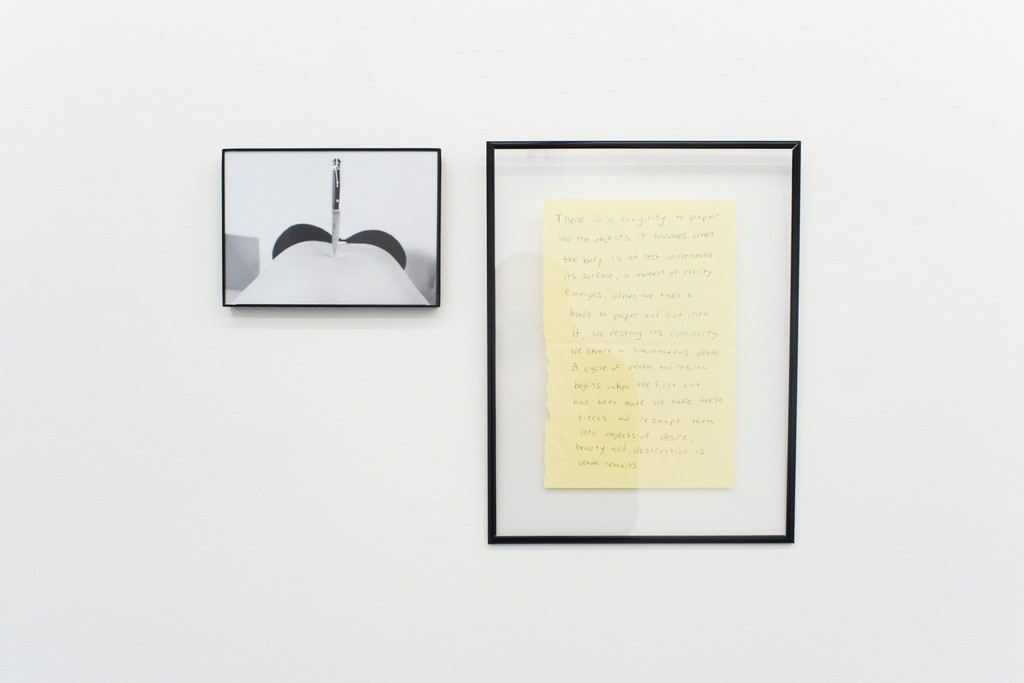 There is a fragility to paper
and the objects it touches when
the body is at rest underneath
its surface, a moment of clarity
emerges. When we take a
blade to paper and cut into
it, we destroy its continuity.
We share a simultaneous death.
A cycle of death, and rebirth
begins when the first cut
has been made we take these
pieces and reshape them
into objects of desire,
beauty and destruction is
what remains.